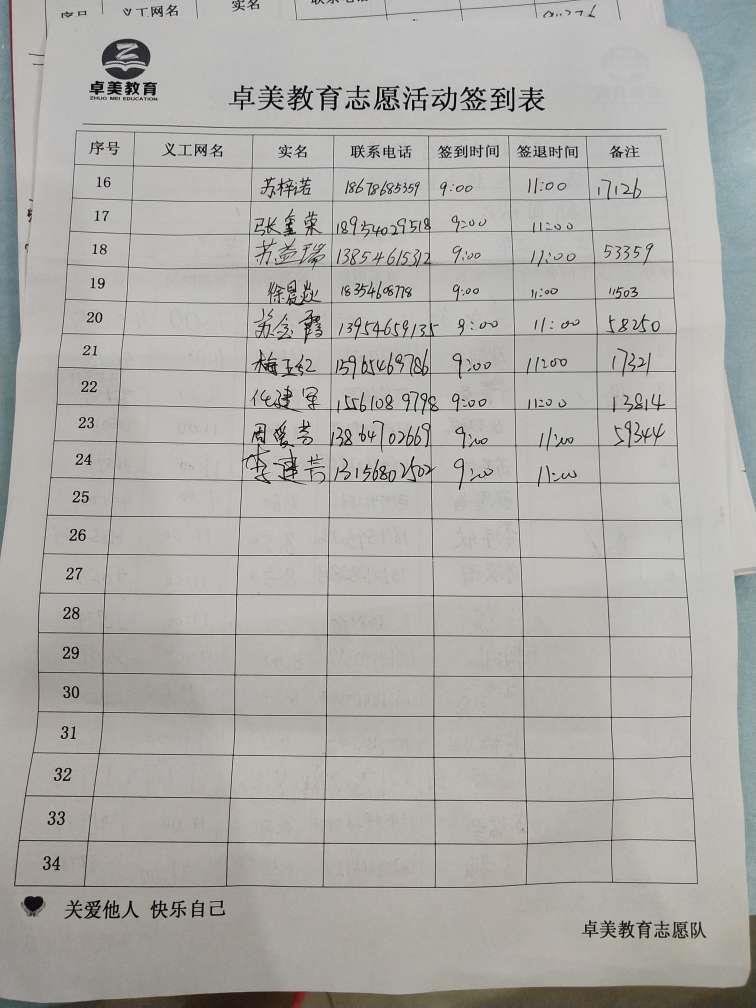 序号 义工网名 实名
卓美教育
ZHUO MEI EDUCATION
卓美教育志愿活动签到表
序号 义工网名 实名 联系电话 签到时间 签退时间 备注
16 苏梓诺 18678685359 9:00 11:00 17126
17 张金荣 18954029518 9:00 11:00
18 苏益瑞 13854615312 9:00 11:00 53359
19 徐晨焱 18354608778 9:00 11:00 11503
20 苏金霞 13954659135 9:00 11:00 58250
21 梅玉红 15965469786 9:00 11:00 17321
22 任建军 15561089798 9:00 11:00 13814
23 周爱芳 13864702669 9:00 11:00 59344
24 李建芳 13156802502 9:00 11:00
25
26
27
28
29
30
31
32
33
34
关爱他人 快乐自己
卓美教育志愿队